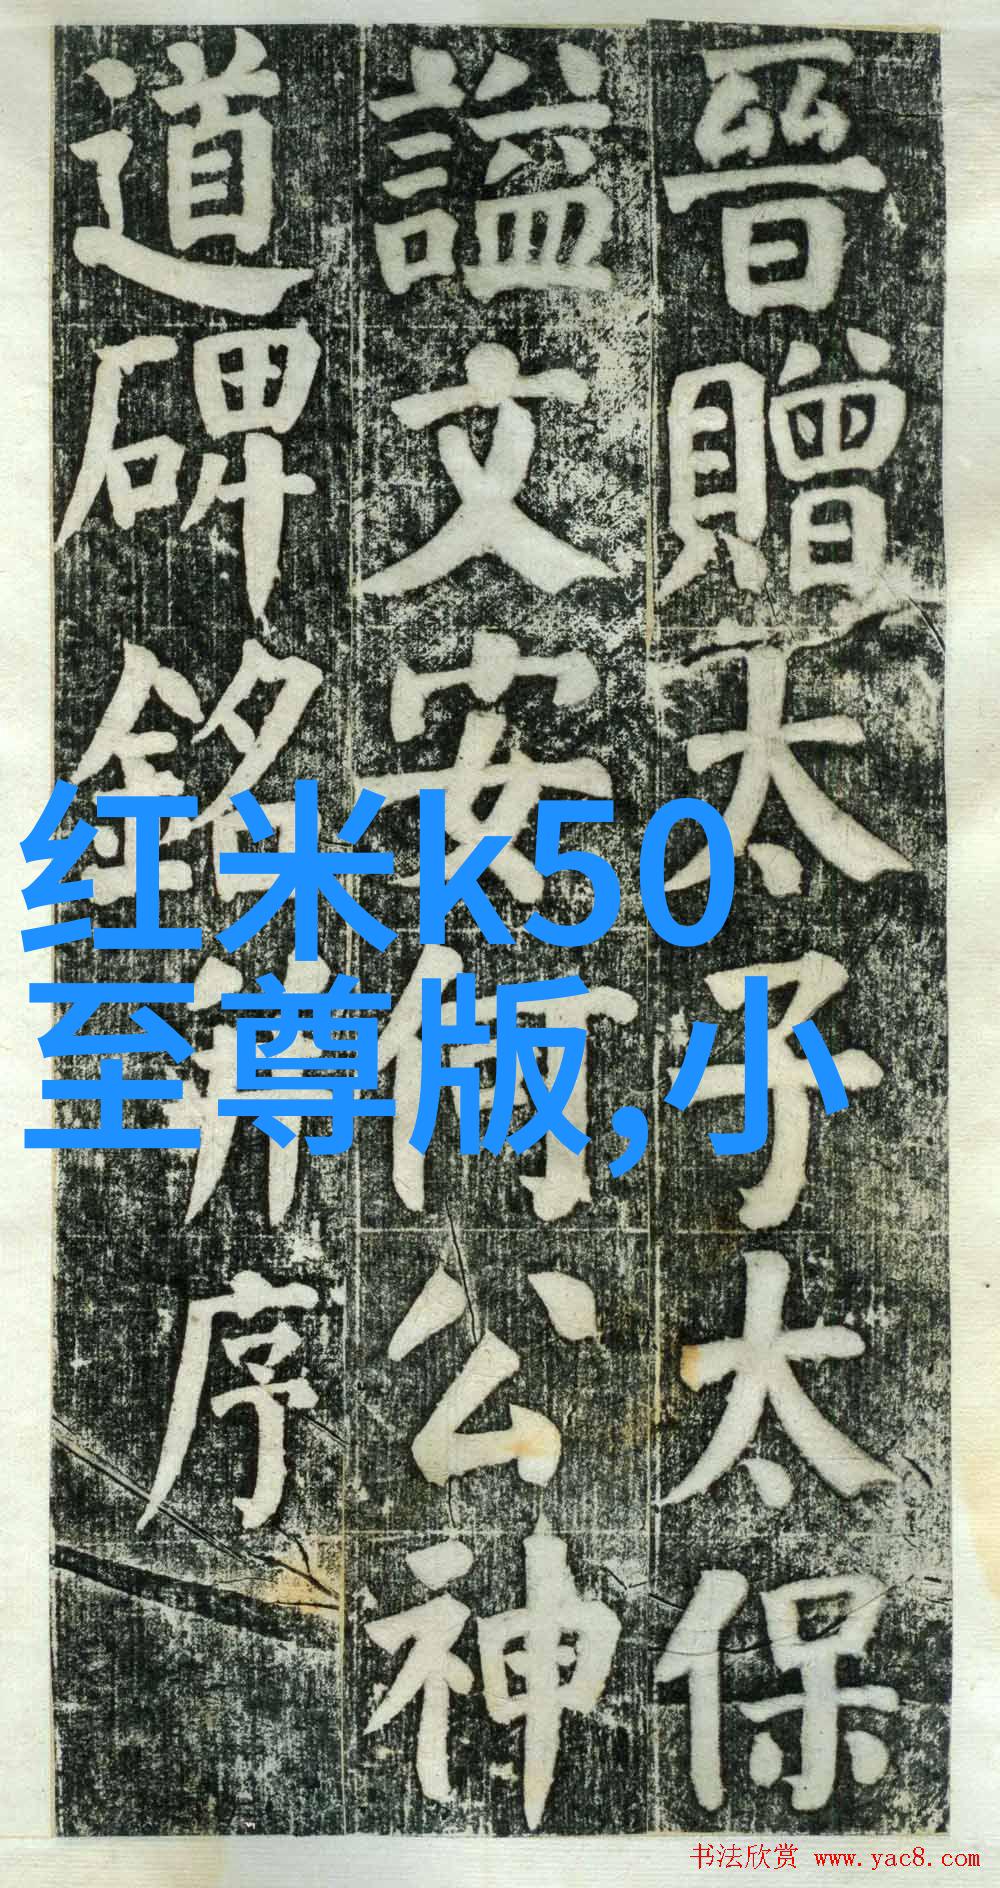 晉贈太子太保
謚文安何公神
道碑銘并序
红米k50
至尊版,小
书法欣赏 www.yac8.com